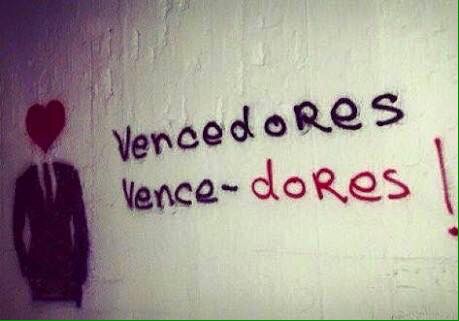 VencedoREs
Vence-doREs!